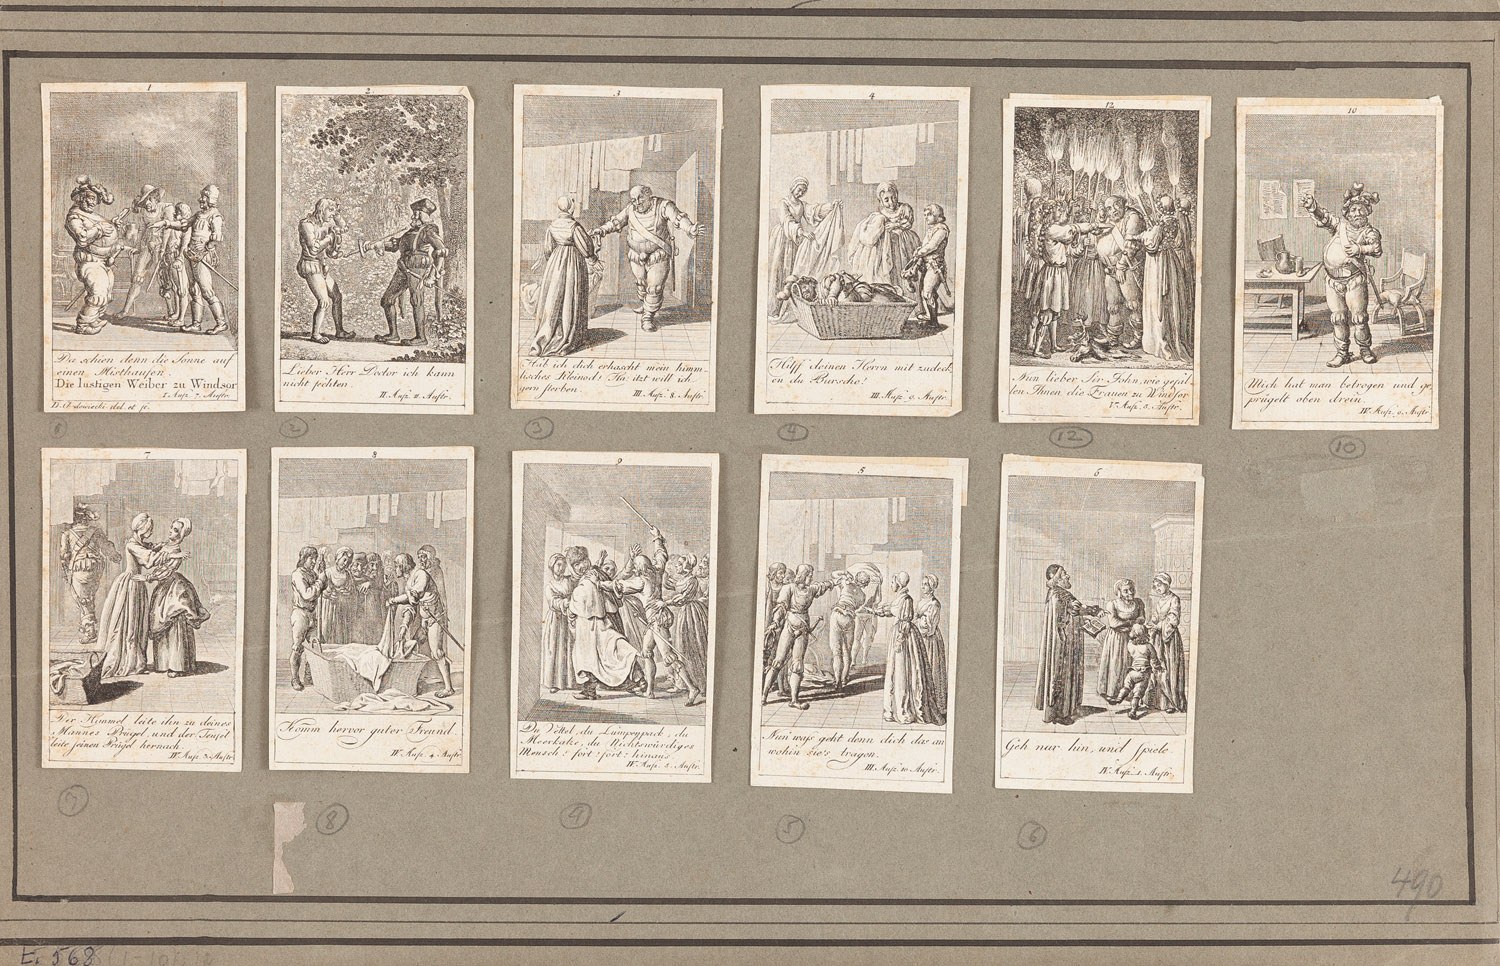 1
Da schien denn die Sonne auf
einen Misthaufen.
Die lustigen Weiber zu Windsor
I. Aufz. 7. Auftr.
D. Chodowiecki del. et sc.
1
2
Lieber Herr Doctor ich kann
nicht fechten.
II. Aufz. 11. Auftr.
2
3
Hab ich dich erhascht mein himm-
lisches Kleinod! Ha! itzt will ich
gern sterben.
III. Aufz. 8. Auftr.
3
4
Hilff deinen Herrn mit zudeck
en du Bursche!
III. Aufz. 9. Auftr.
4
12
Nun lieber Sir John, wie gefal-
len Ihnen die Frauen zu Windsor
V. Aufz. 5. Auftr.
12
10
Mich hat man betrogen und ge-
prügelt oben drein.
IV. Aufz. 9. Auftr.
10
7
Der Himmel leite ihn zu deines
Mannes Prügel, und der Teufel
leite seinen Prügel hernach.
IV. Aufz. 3. Auftr.
7
8
Komm hervor guter Freund
IV. Aufz. 4. Auftr.
8
9
Du Vettel, du Lumpenpack, du
Meerkatze, du Nichtswürdiges
Mensch! fort! fort! hinaus
IV. Aufz. 5. Auftr.
9
5
Nun was geht denn dich das an
wohin sie's tragen.
III. Aufz. 10. Auftr.
5
6
Geh nur hin, und spiele
IV. Aufz. 1. Auftr.
6
490
E. 568